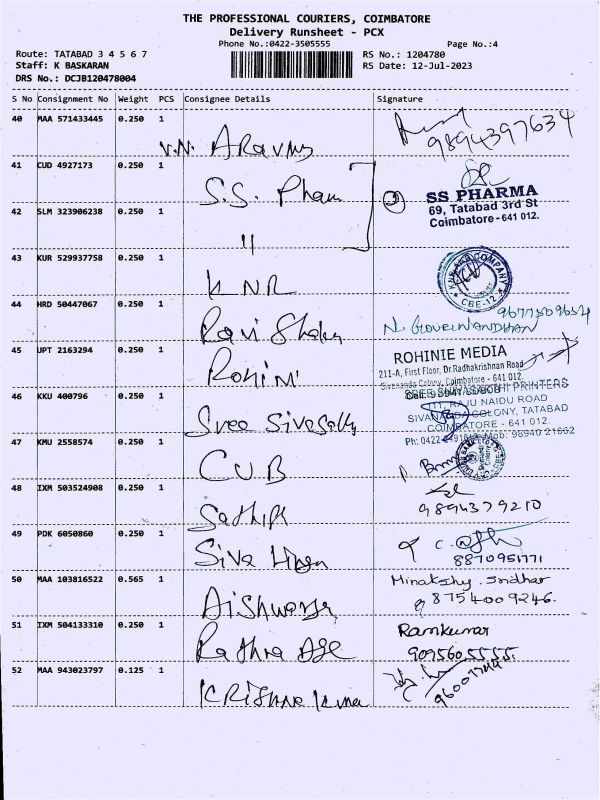 THE PROFESSIONAL COURIERS, COIMBATORE
Delivery Runsheet - PCX
Phone No.:0422-3505555 Page No.:4
Route: TATABAD 3 4 5 6 7 RS No.: 1204780
Staff: K BASKARAN RS Date: 12-Jul-2023
DRS No.: DCJB120478004
S No Consignment No Weight PCS Consignee Details Signature
40 MAA 571433445 0.250 1
V.N. ARAVIND 9894397634
41 CUD 4927173 0.250 1
S.S. Pham
SS PHARMA
69, Tatabad 3rd St
Coimbatore - 641 012.
42 SLM 323906238 0.250 1
"
43 KUR 529937758 0.250 1
KNR
KNR & COMPANY
CBE-12
44 HRD 50447067 0.250 1
9677509654
Ravi Shankar N. GOVERTHANDHAN
45 UPT 2163294 0.250 1
Rohini
ROHINIE MEDIA
211-A, First Floor, Dr.Radhakrishnan Road
Sivananda Colony, Coimbatore - 641 012.
46 KKU 400796 0.250 1
Sree Siva
PRINTERS
111, RAJU NAIDU ROAD
SIVANANDA COLONY, TATABAD
COIMBATORE - 641 012.
Mob: 98940 21662
47 KMU 2558574 0.250 1
CUB
48 IXM 503524908 0.250 1
Sathish 9894379210
49 PDK 6050860 0.250 1
Siva Linga 8870951771
50 MAA 103816522 0.565 1
Minakshy. Sridhar
Aishwarya 8754009246.
51 IXM 504133310 0.250 1
Ramkumar
Rathna Age 9095605555
52 MAA 943023797 0.125 1
Krishna Kumar